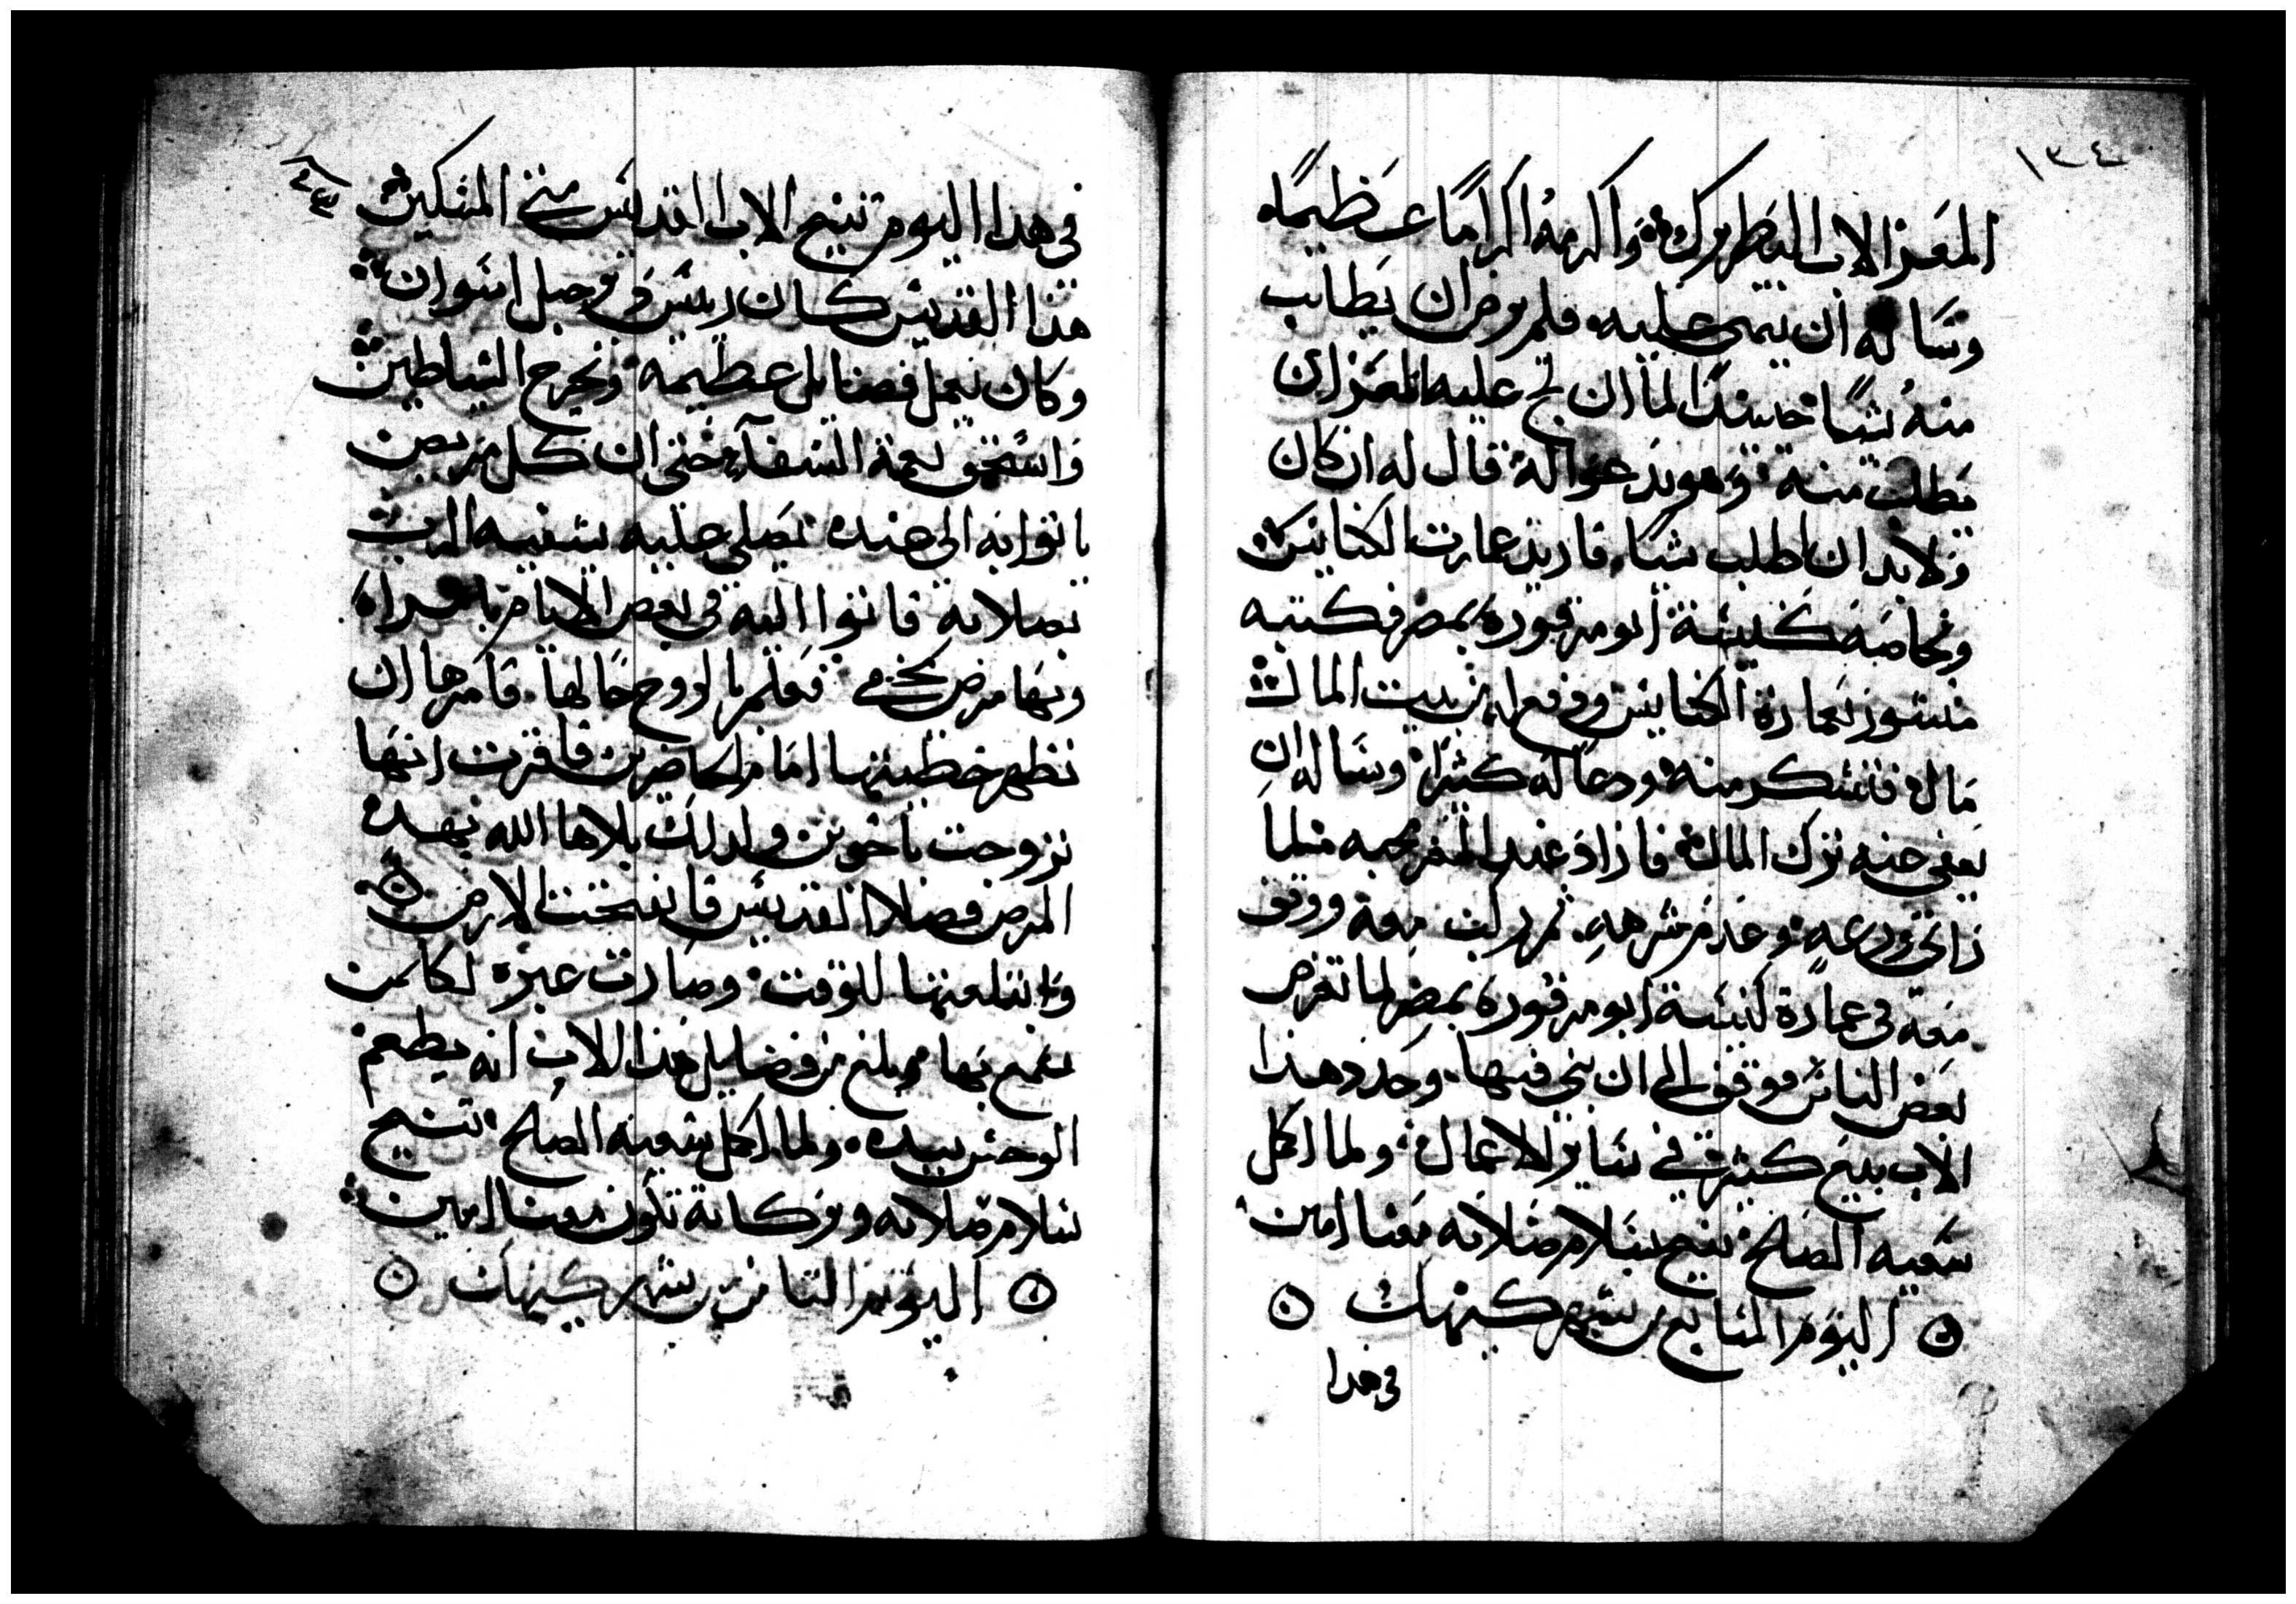 ١٣٤
المعز الاب البطريرك واكرمه اكرامًا عظيمًا
وساله ان يتمنى عليه فلم يرض ان يطلب
منه شيًا حينيدًا لما ان لح عليه المعز ان
يطلب منه وهو يدعوا له قال له ان كان
ولا بد ان اطلب شيًا فاريد عمارت الكنايس
وخاصة كنيسة ابو مرقوره بمصر فكتب له
منشور بعمارة الكنايس ودفع له من بيت المال
مال فتشكر منه ودعا له كثيرًا وساله ان
يعفى عنه ترك المال فازاد عند المعز محبه مثلما
راى ورعه وعدم شرهه ثم ركب معه ووقف
معه فى عمارة كنيسة ابو مرقوره بمصر لما تعرض
بعض الناس فوقف الى ان بنى فيها وجدد هذا
الاب بيع كثيره في ساير الاعمال ولما اكمل
سعيه الصالح تنيح بسلام صلاته معنا امين
اليوم السابع من شهر كيهك
فى هدا
فى هدا اليوم تنيح الاب القديس متى المسكين
هذا القديس كان رييس فى جبل اسوان
وكان يعمل فضايل عظيمه ويخرج الشياطين
واستحق نعمة الشفآ حتى ان كل مريض
ياتوا به الى عنده يصلى عليه يشفيه الرب
بصلاته فاتوا اليه فى بعض الايام بامراه
وبها مرض مخزى فعلم بالروح حالها فامرها ان
تظهر خطيتها امام الحاضرين فاقرت انها
تزوجت باخوين ولدلك بلاها الله بهده
المرض فصلا القديس فانفتحت الارض
وابتلعتها للوقت وصارت عبره لكل من
سمع بها وبلغ من فضايل هذا الاب انه يطعم
الوحش بيده ولما اكمل سعيه الصالح تنيح
بسلام صلاته وبركاته تكون معنا امين
اليوم الثامن من شهر كيهك